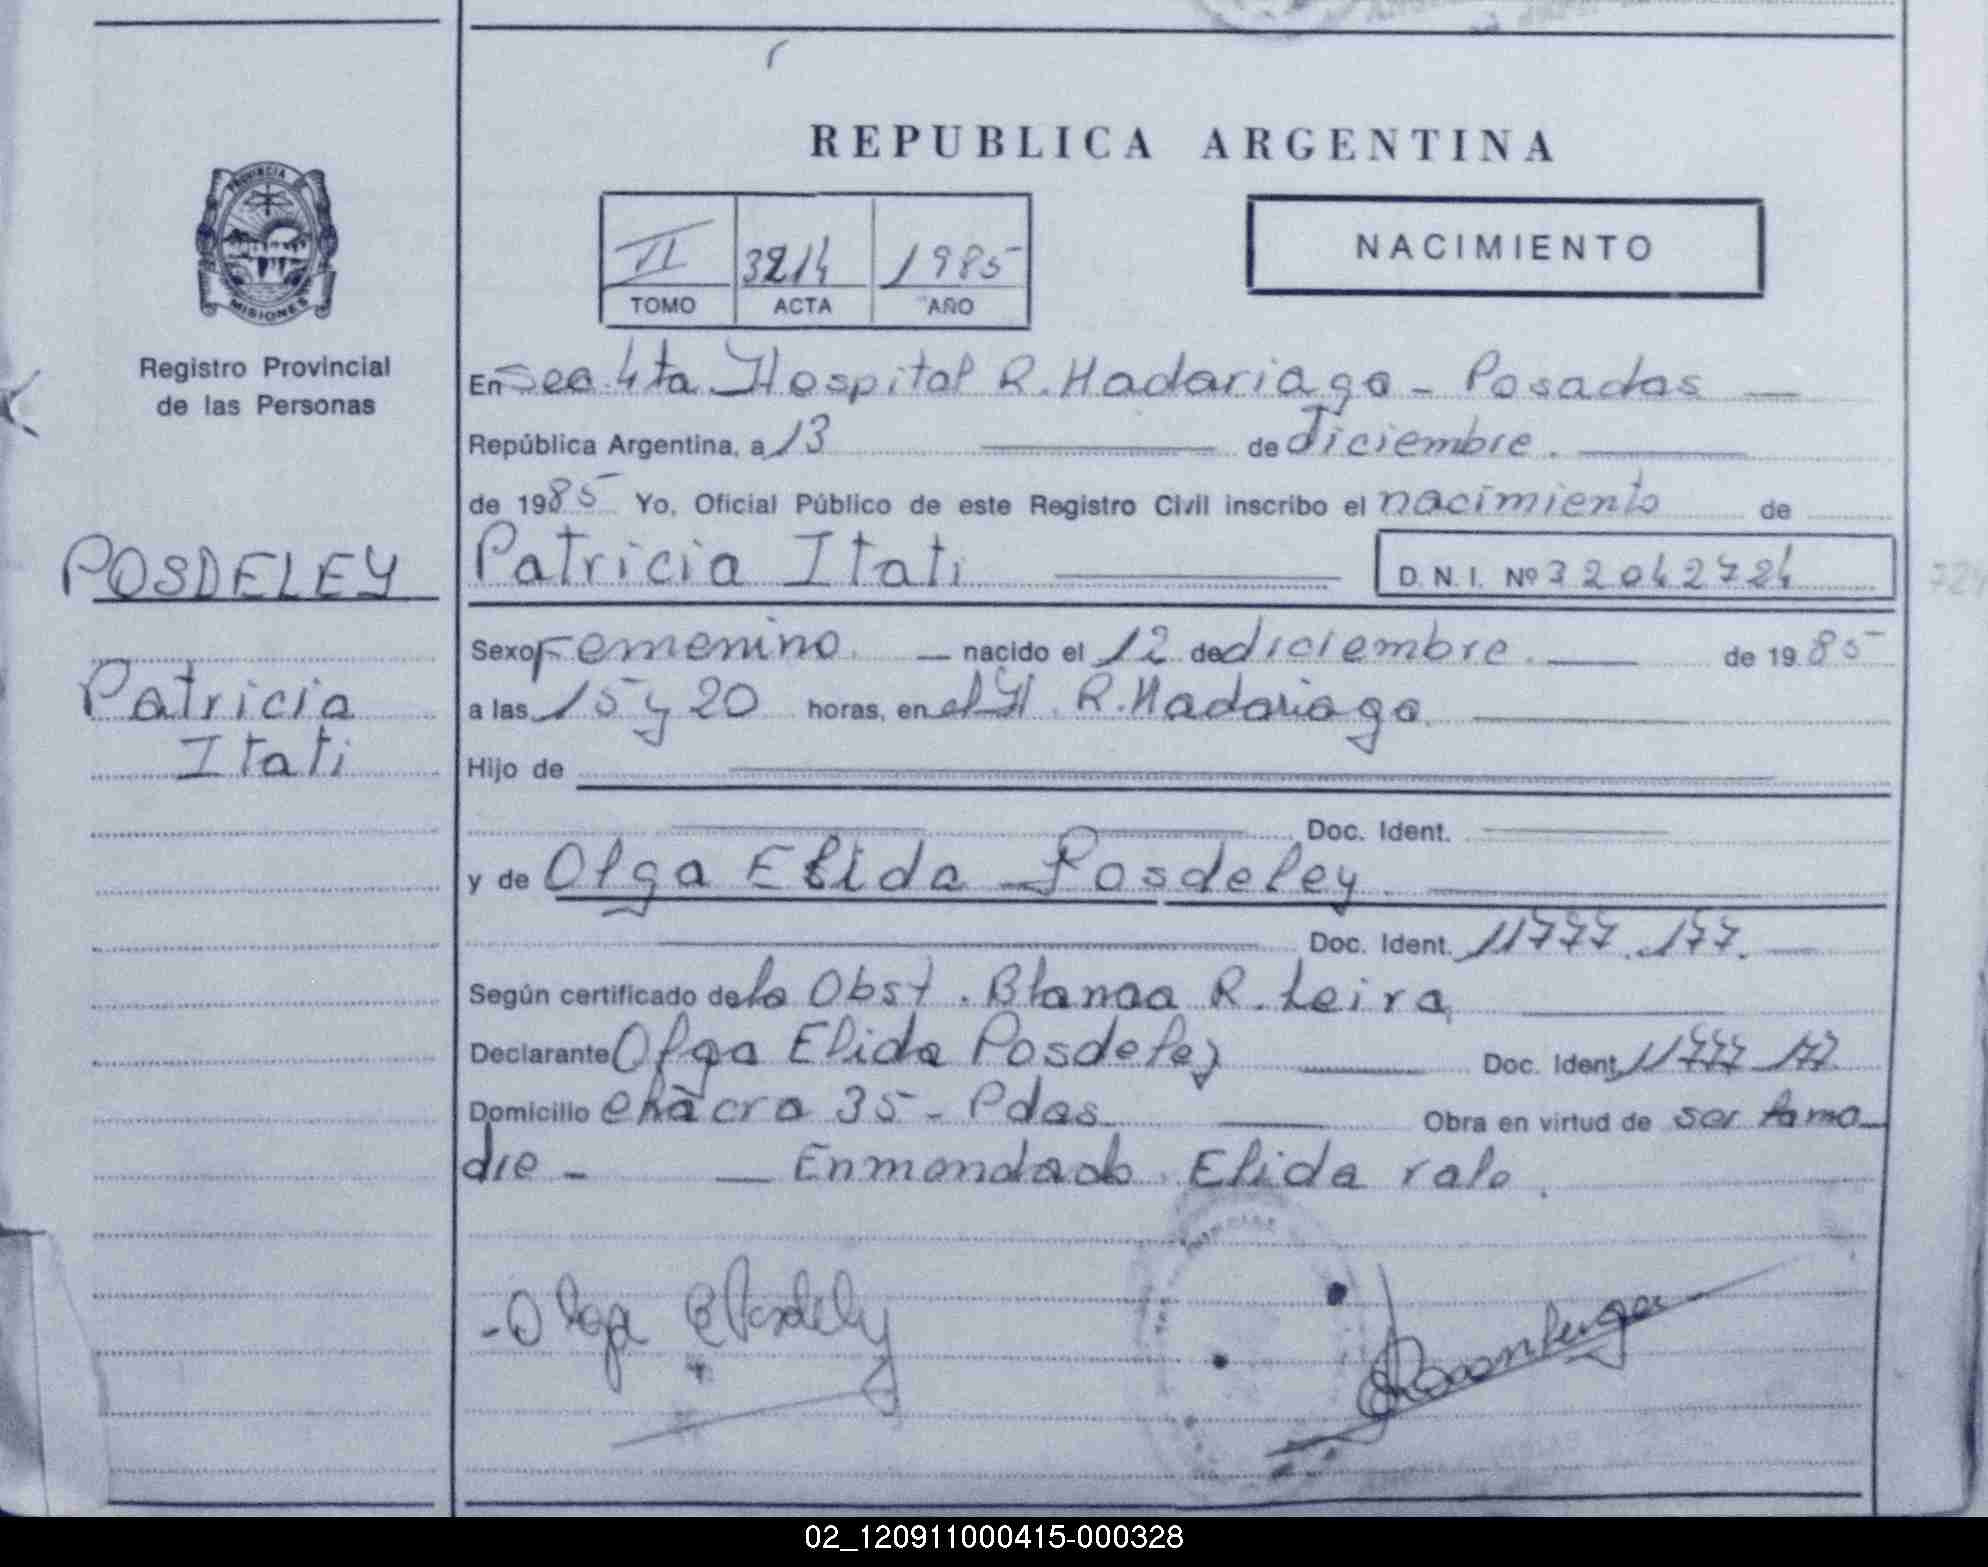 REPUBLICA ARGENTINA
PROVINCIA
MISIONES
Registro Provincial
de las Personas
II 3214 1985
TOMO ACTA AÑO
NACIMIENTO
En Sec. 4ta Hospital R. Madariaga - Posadas
República Argentina, a 13 de diciembre.
de 1985 Yo, Oficial Público de este Registro Civil inscribo el nacimiento de
POSDELEY
Patricia Itati D.N.I. Nº 32042724
Sexo Femenino. nacido el 12 de diciembre. de 1985
Patricia
Itati
a las 15 y 20 horas, en el H. R. Madariaga.
Hijo de
Doc. Ident.
y de Olga Elida Posdeley.
Doc. Ident. 11777.177.
Según certificado de la Obst. Blanca R. Leira
Declarante Olga Elida Posdeley Doc. Ident. 11777 177.
Domicilio chacra 35 - Pdas. Obra en virtud de ser la ma
dre - Enmendado. Elida vale.
Olga E Posdeley
02_120911000415-000328